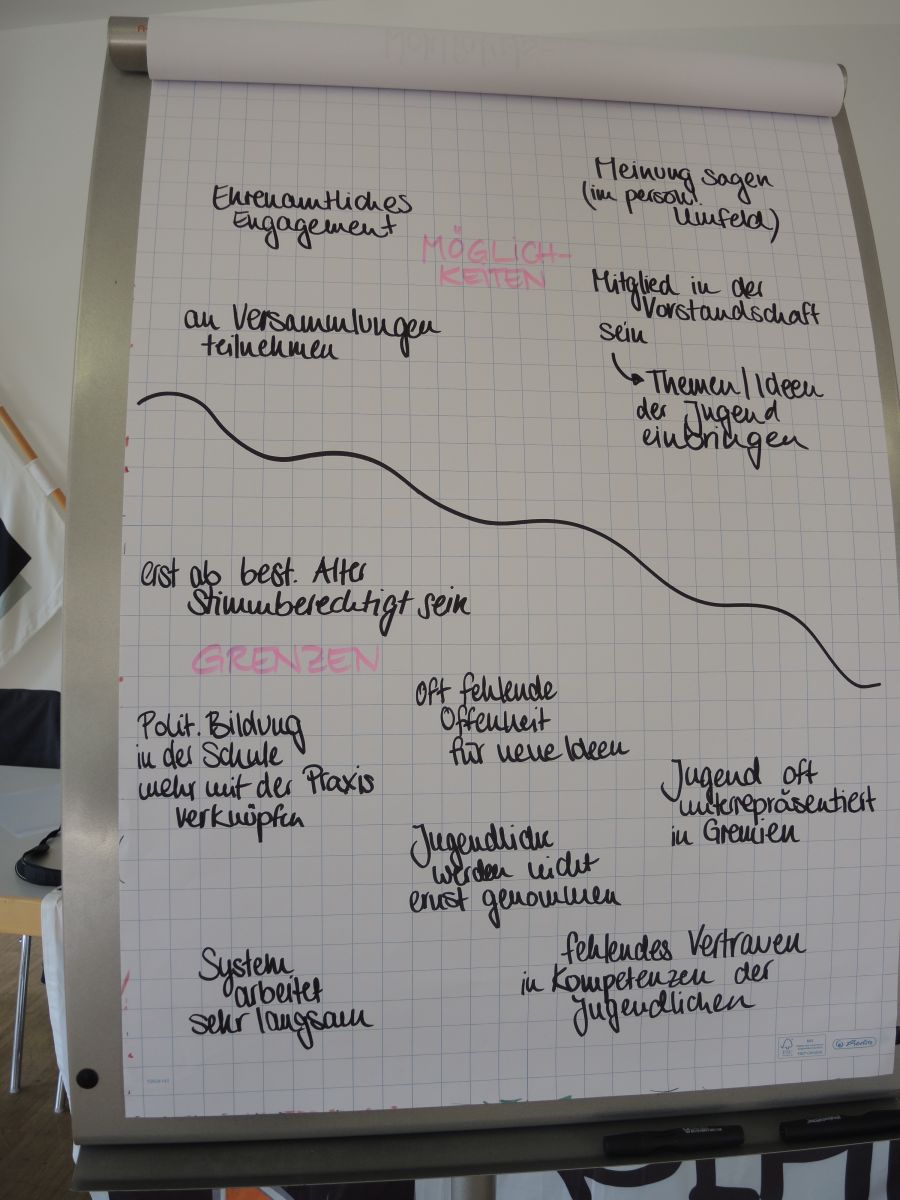 Ehrenamtliches
Engagement
Meinung sagen
(im persönl.
Umfeld)
MÖGLICH-
KEITEN
Mitglied in der
Vorstandschaft
sein
an Versammlungen
teilnehmen
Themen/Ideen
der Jugend
einbringen
erst ab best. Alter
Stimmberechtigt sein
GRENZEN
Polit. Bildung
in der Schule
mehr mit der Praxis
verknüpfen
Oft fehlende
Offenheit
für neue Ideen
Jugend oft
unterrepräsentiert
in Gremien
Jugendliche
werden nicht
ernst genommen
System
arbeitet
sehr langsam
fehlendes Vertrauen
in Kompetenzen der
Jugendlichen